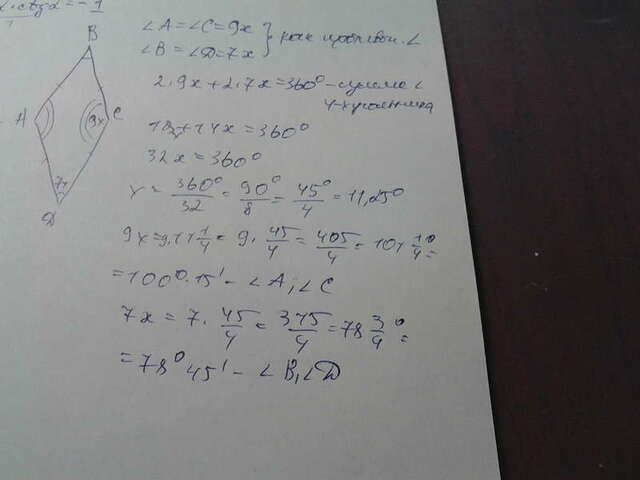 B
A
C
9x
7x
D
∠A=∠C=9x
∠B=∠D=7x } как против. ∠
2·9x+2·7x=360° - сумма ∠
4-хугольника
18x+14x=360°
32x=360°
x=360°/32=90°/8=45°/4=11,25°
9x=9·11 1/4=9·45/4=405/4=101 1/4°=
=100°15' - ∠A, ∠C
7x=7·45/4=315/4=78 3/4°=
=78°45' - ∠B, ∠D